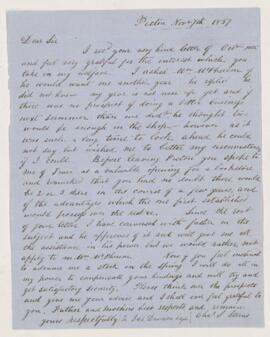 Pictou Nov 7th 1857
Dear Sir
I recd your very kind letter of Octr
and feel very grateful for the interest which you
take in my welfare. I asked Mr McPherson if
he would want me another year. he replied he
did not know my year is not up yet and if
there was no prospect of doing a better business
next Summer than we did he thought two
would be enough in the shop — however as I
was such a long time to look ahead he could
not say but wished me to better my circumstances
if I could. Before leaving Pictou you spoke to
me of I was as a valuable opening for a bookstore
and remarked that you had no doubt there would
be 2 or 3 there in the course of a few years, and
of the advantage which the one first established
would possess over the others. Since the rect
of your letter I have conversed with father on the
subject and he approves of it and will give me all
the assistance in his power but we would rather not
apply to Mr McPherson. Now if you feel inclined
to advance me a stock in the spring I will do all in
my power to compensate your kindness and will try and
get satisfactory security. Please think over the prospects
and give me your advice and I shall feel grateful to
you. Father and mother send respects and remain
yours respectfully